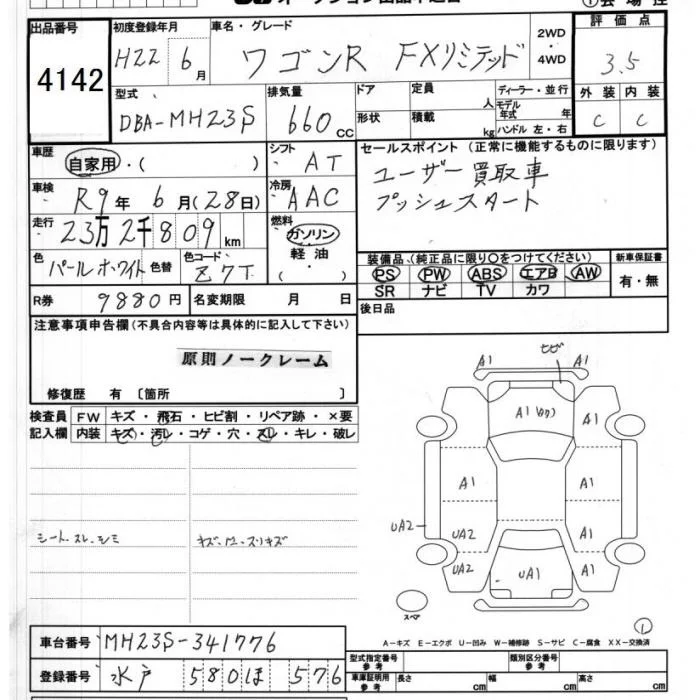 出品番号
4142
初度登録年月
H22 6月
車名・グレード
ワゴンR FXリミテッド
2WD
4WD
評価点
3.5
外装 内装
C C
型式
DBA-MH23S
排気量
660cc
ドア
形状
定員 人
積載 kg
ディーラー・並行
モデル年式 年
ハンドル 左・右
車歴
自家用・( )
シフト
AT
セールスポイント (正常に機能するものに限ります)
ユーザー買取車
プッシュスタート
車検
R9年6月(28日)
冷房
AAC
走行
23万2千809km
燃料
ガソリン
軽油
( )
色
パールホワイト
色替
色コード
Z7T
装備品(純正品に限り○をつけてください)
PS PW ABS エアB AW
SR ナビ TV カワ
新車保証書
有・無
R券 9880円
名変期限 月 日
後日品
注意事項申告欄(不具合内容等は具体的に記入して下さい)
原則ノークレーム
修復歴 有〔箇所 〕
検査員記入欄
FW キズ・飛石・ヒビ割・リペア跡・×要
内装 キズ・汚レ・コゲ・穴・スレ・キレ・破レ
シートスレ・シミ
A1 ヒビ A1
A1 A1
A1 A1
UA2 UA2 A1
UA2 UA1 A1
スペア
1
A-キズ E-エクボ U-凹み W-補修跡 S-サビ C-腐食 XX-交換済
車台番号 MH23S-341776
登録番号 水戸 580 ほ 576
型式指定番号
参考
類別区分番号
参考
車庫証明用
参考
長さ cm
幅 cm
高さ cm